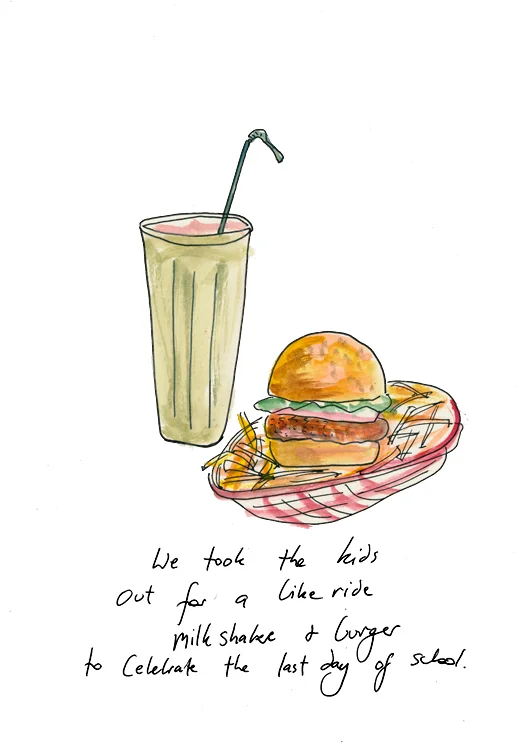 We took the kids
out for a bike ride
milkshake & burger
to celebrate the last day of school.